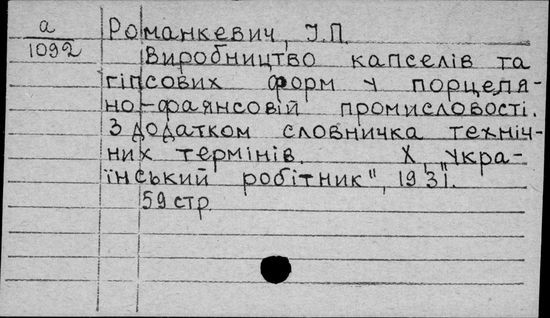 а
1092
Романкевич, І.П.
Виробництво капселів та
гіпсових форм у порцеля-
но-фаянсовій промисловості.
З додатком словничка техніч-
них термінів. Х, „Укра-
їнський робітник", 1931.
59 стр.